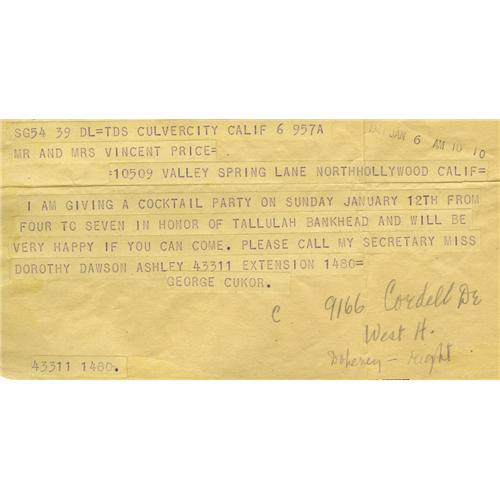 SG54 39 DL=TDS CULVERCITY CALIF 6 957A
JAN 6 AM 10 10
MR AND MRS VINCENT PRICE=
=10509 VALLEY SPRING LANE NORTHHOLLYWOOD CALIF=
I AM GIVING A COCKTAIL PARTY ON SUNDAY JANUARY 12TH FROM
FOUR TO SEVEN IN HONOR OF TALLULAH BANKHEAD AND WILL BE
VERY HAPPY IF YOU CAN COME. PLEASE CALL MY SECRETARY MISS
DOROTHY DAWSON ASHLEY 43311 EXTENSION 1480=
GEORGE CUKOR.
C 9166 Cordell Dr
West H.
Doheney - right
43311 1480.